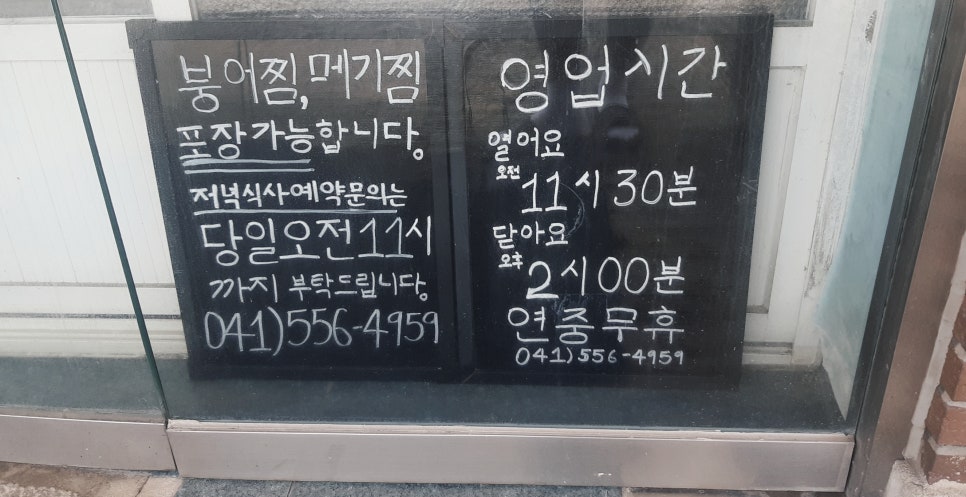 붕어찜,메기찜
포장가능합니다.
저녁식사예약문의는
당일오전11시
까지 부탁드립니다.
041)556-4959
영업시간
열어요
오전 11시30분
닫아요
오후 2시00분
연중무휴
041)556-4959